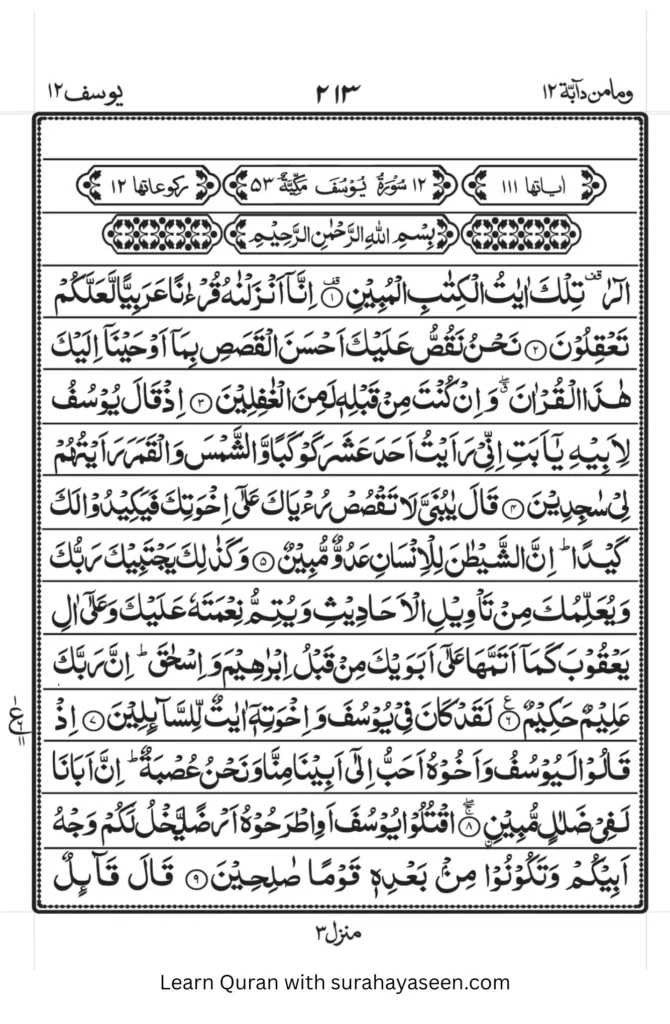 ومامن دآبّة ١٢
٢١٣
يوسف ١٢
اياتها ١١١
١٢ سُوْرَةُ يُوْسُفَ مَكِّيَّةٌ ٥٣
ركوعاتها ١٢
بِسْمِ اللّٰهِ الرَّحْمٰنِ الرَّحِيْمِ
الٓرٰ ۫ تِلْكَ اٰيٰتُ الْكِتٰبِ الْمُبِيْنِ ۟۫ ١ اِنَّاۤ اَنْزَلْنٰهُ قُرْءٰنًا عَرَبِيًّا لَّعَلَّكُمْ
تَعْقِلُوْنَ ٢ نَحْنُ نَقُصُّ عَلَيْكَ اَحْسَنَ الْقَصَصِ بِمَاۤ اَوْحَيْنَاۤ اِلَيْكَ
هٰذَا الْقُرْاٰنَ ۖۗ وَاِنْ كُنْتَ مِنْ قَبْلِهٖ لَمِنَ الْغٰفِلِيْنَ ٣ اِذْ قَالَ يُوْسُفُ
لِاَبِيْهِ يٰۤاَبَتِ اِنِّيْ رَاَيْتُ اَحَدَ عَشَرَ كَوْكَبًا وَّالشَّمْسَ وَالْقَمَرَ رَاَيْتُهُمْ
لِيْ سٰجِدِيْنَ ٤ قَالَ يٰبُنَيَّ لَا تَقْصُصْ رُءْيَاكَ عَلٰۤى اِخْوَتِكَ فَيَكِيْدُوْا لَكَ
كَيْدًا ؕ اِنَّ الشَّيْطٰنَ لِلْاِنْسَانِ عَدُوٌّ مُّبِيْنٌ ٥ وَكَذٰلِكَ يَجْتَبِيْكَ رَبُّكَ
وَيُعَلِّمُكَ مِنْ تَاْوِيْلِ الْاَحَادِيْثِ وَيُتِمُّ نِعْمَتَهٗ عَلَيْكَ وَعَلٰۤى اٰلِ
يَعْقُوْبَ كَمَاۤ اَتَمَّهَا عَلٰۤى اَبَوَيْكَ مِنْ قَبْلُ اِبْرٰهِيْمَ وَاِسْحٰقَ ؕ اِنَّ رَبَّكَ
عَلِيْمٌ حَكِيْمٌ ٦ لَقَدْ كَانَ فِيْ يُوْسُفَ وَاِخْوَتِهٖۤ اٰيٰتٌ لِّلسَّآىِٕلِيْنَ ٧ اِذْ
قَالُوْا لَيُوْسُفُ وَاَخُوْهُ اَحَبُّ اِلٰۤى اَبِيْنَا مِنَّا وَنَحْنُ عُصْبَةٌ ؕ اِنَّ اَبَانَا
لَفِيْ ضَلٰلٍ مُّبِيْنِ ٨ اۨقْتُلُوْا يُوْسُفَ اَوِ اطْرَحُوْهُ اَرْضًا يَّخْلُ لَكُمْ وَجْهُ
اَبِيْكُمْ وَتَكُوْنُوْا مِنْۢ بَعْدِهٖ قَوْمًا صٰلِحِيْنَ ٩ قَالَ قَآىِٕلٌ
منزل ٣
Learn Quran with surahayaseen.com